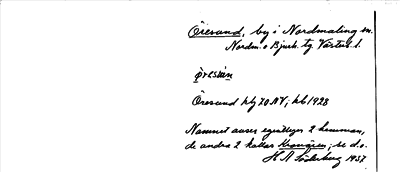 Öresund, by i Nordmaling sn.
Nordm. o Bjurh. tg. Västerb. l.
Öresund
hfg 70 NV; hb 1928
Namnet avser egentligen 2 hemman,
de andra 2 kallas Kronören; se d. o.
H A Söderberg 1937